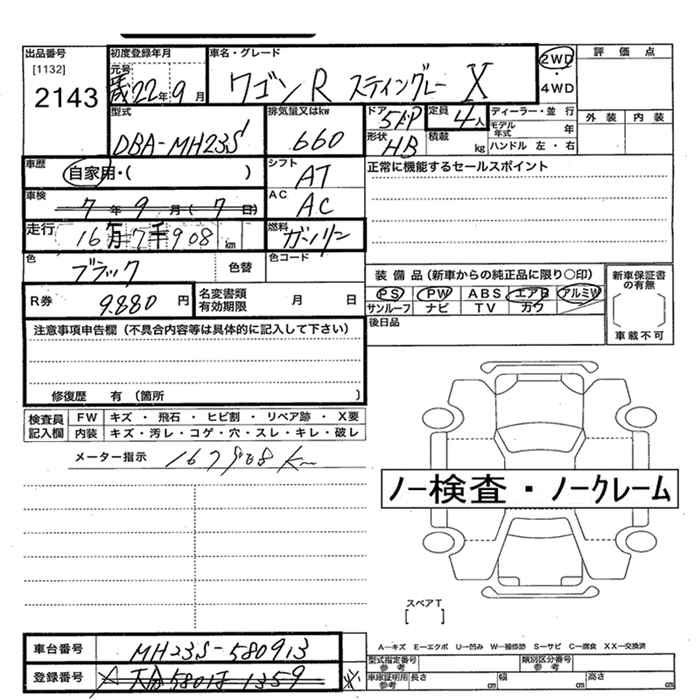 出品番号
[1132]
2143
初度登録年月
元号
22年 9月
車名・グレード
ワゴンR スティングレー X
2WD
・
4WD
評価点
外装 内装
型式
DBA-MH23S
排気量又はkw
660
ドア 5ドア
形状 HB
定員 4人
積載 kg
ディーラー・並行
モデル年式 年
ハンドル 左・右
車歴
自家用・( )
シフト
AT
正常に機能するセールスポイント
車検
7年 9月 (7日)
AC
AC
走行
16万7千908 km
燃料
ガソリン
色
ブラック
色替
色コード
装備品 (新車からの純正品に限り○印)
PS PW ABS エアB アルミW
サンルーフ ナビ TV カワ
後日品
新車保証書の有無
車載不可
R券 9.880 円
名変書類有効期限 月 日
注意事項申告欄 (不具合内容等は具体的に記入して下さい)
修復歴 有 (箇所 )
検査員記入欄
FW キズ ・ 飛石 ・ ヒビ割 ・ リペア跡 ・ X要
内装 キズ・汚レ・コゲ・穴・スレ・キレ・破レ
メーター指示 167908 km
ノー検査・ノークレーム
スペアT
[ ]
車台番号 MH23S-580913
登録番号
A―キズ E―エクボ U―凹み W―補修跡 S―サビ C―腐食 XX―交換済
型式指定番号 参考
類別区分番号 参考
車庫証明用 参考 長さ cm 幅 cm 高さ cm